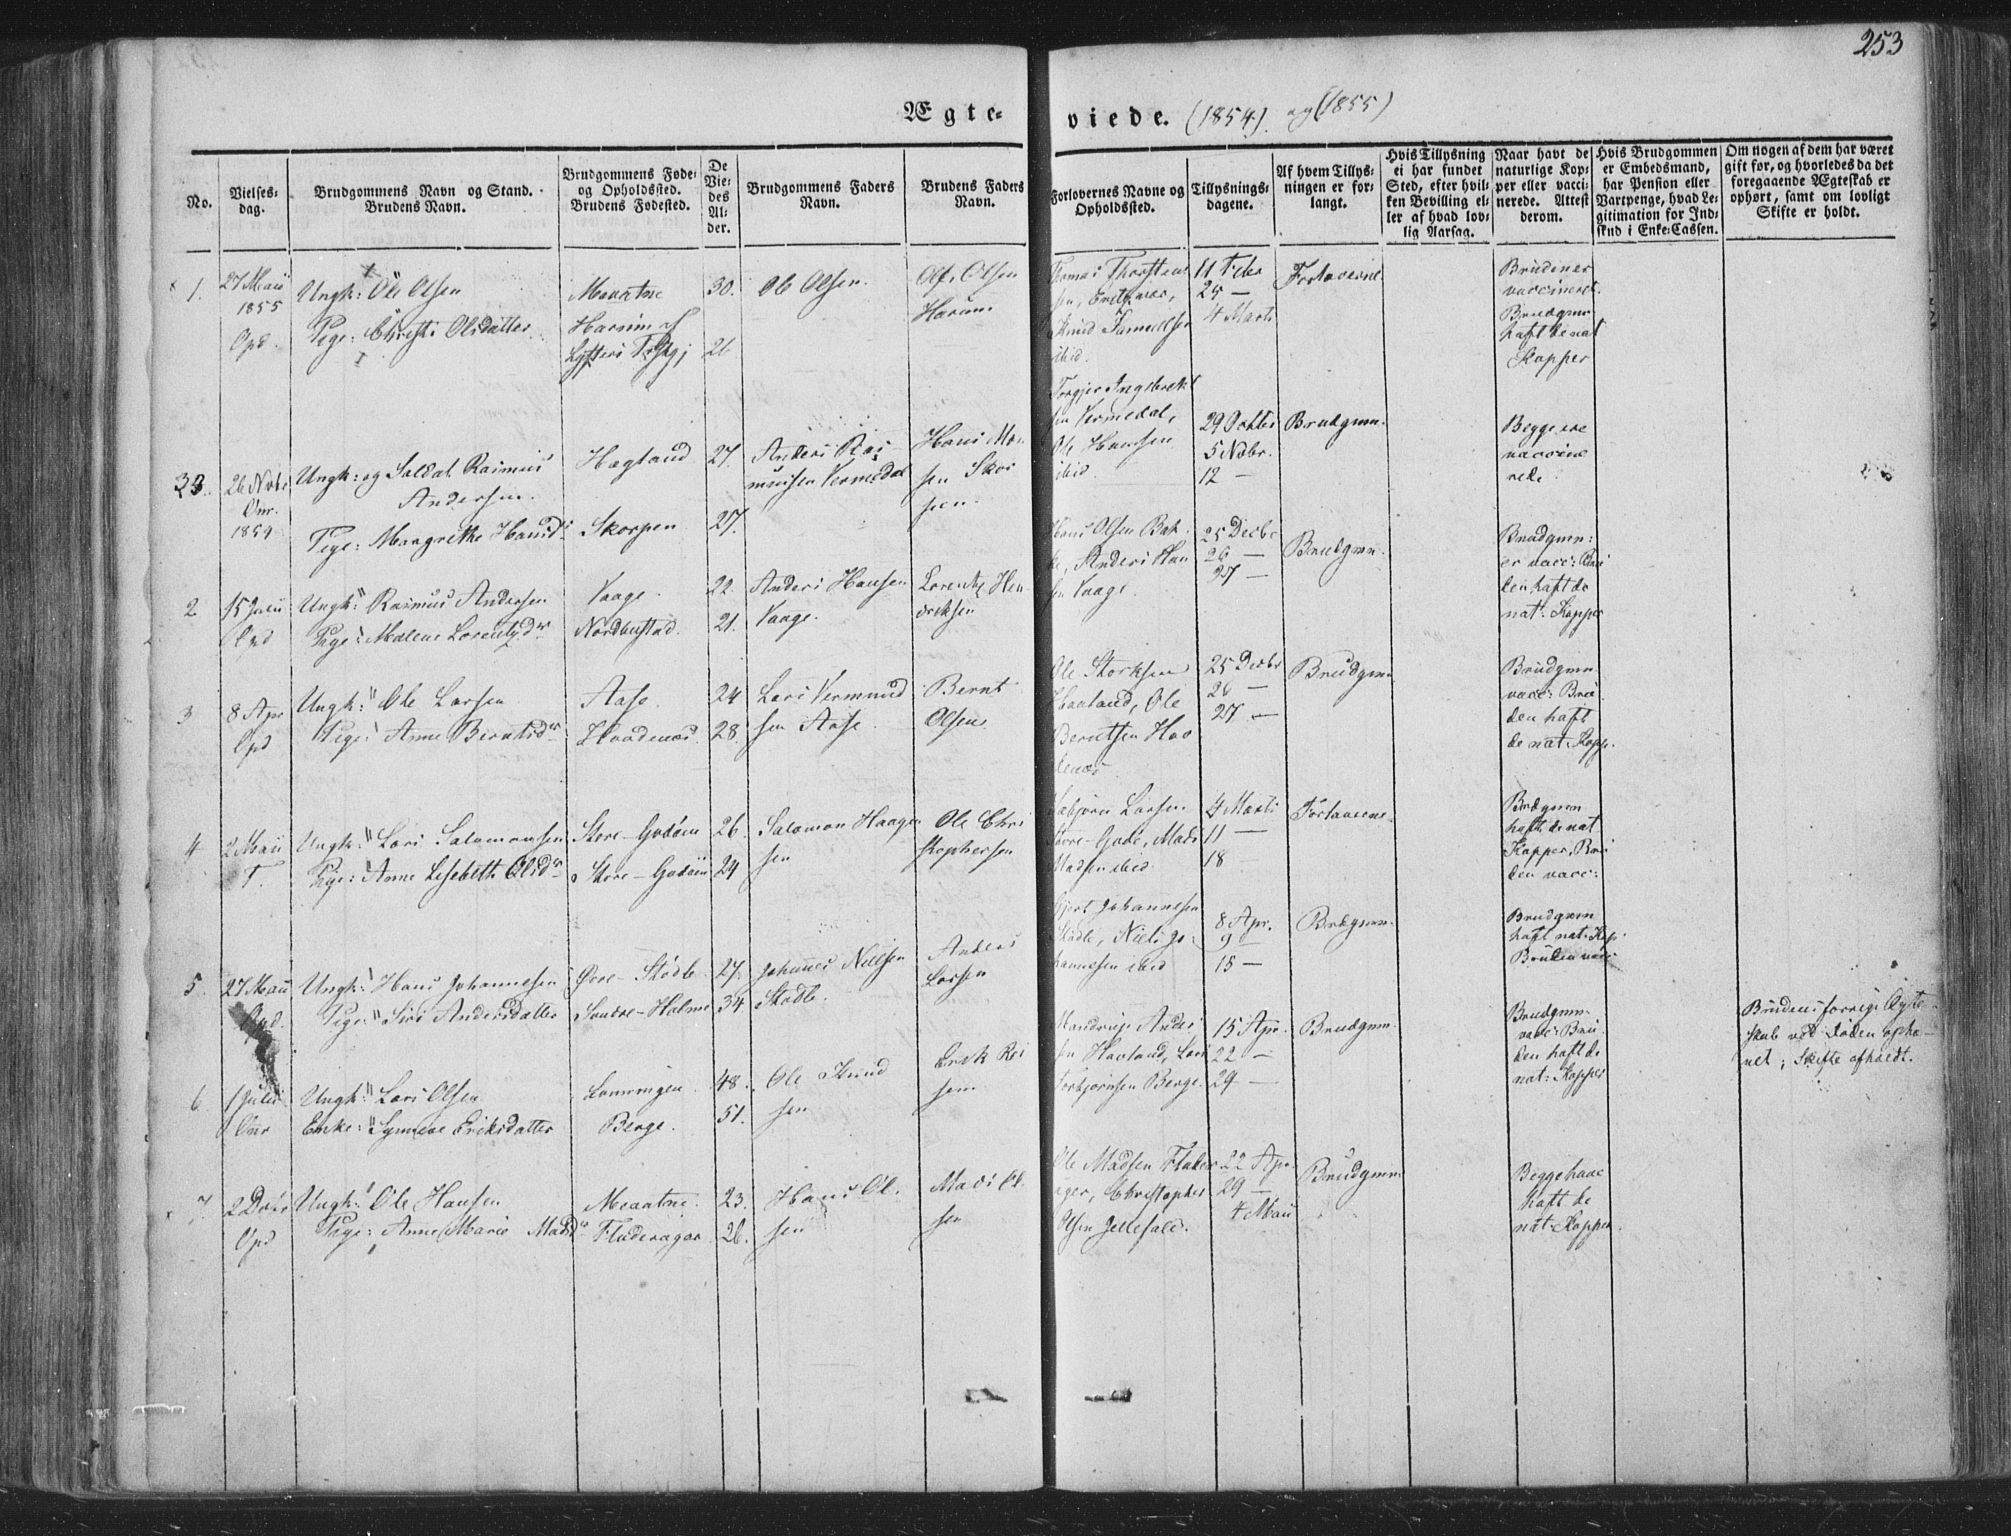 253
Ægte- viede. (1854) og (1855)
No.
Vielses-
dag.
Brudgommens Navn og Stand.
Brudens Navn.
Brudgommens Føde-
og Opholdssted.
Brudens Fødested.
De
Vie-
des
Al-
der.
Brudgommens Faders
Navn.
Brudens Faders
Navn.
Forlovernes Navne og
Opholdssted.
Tillysnings-
dagene.
Af hvem Tillys-
ningen er for-
langt.
Hvis Tillysning
ei har fundet
Sted, efter hvil-
ken Bevilling el-
ler af hvad lov-
lig Aarsag.
Naar havt de
naturlige Kop-
per eller vacci-
nerede. Attest
derom.
Hvis Brudgommen
er Embedsmand,
har Pension eller
Vartpenge, hvad Le-
gitimation for Ind-
skud i Enke-Cassen.
Om nogen af dem har været
gift før, og hvorledes da det
foregaaende Ægteskab er
ophørt, samt om lovligt
Skifte er holdt.
1.
27 Maii
1855
Opd.
Ungk: Ole Olsen
Pige: Christi Olsdatter
30.
26
Ole Olsen
Olsen
Harum
11 Febr
25 —
4 Marts
Forloverne
Bruden er
vaccineret.
Brudgmn
haft de nat
Kopper
33.
26 Novb
1854
Ungk: og Soldat Rasmus
Andersen.
Pige: Margrethe Hansd.
Hagland
Skorpen
27.
27.
Anders Ras-
mussen Vermedal
Hans
sen Skor
pen
Torgjer Ingebrekt
sen Vermedal,
Ole Hansen
ibid.
29 Octbr
5 Nobr.
12 —
Brudgmn.
Begge ere
vaccine
rede.
2
15 Julii
Opd
Ungk: Rasmus Andersen
Pige: Malene Lorentzdr
Vaage.
Nordbustad.
22.
21.
Anders Hansen
Vaage.
Lorentz Hen
driksen
Hans Olsen Bak
ke, Anders Han
sen Vaage.
25 Decbr
26 —
27 —
Brudgmn.
Brudgmn:
er vacc: Bru
den haft de
nat: Kopper
3
8 Apr
Opd
Ungk: Ole Larsen
Pige: Anne Berntsdr
Aase.
24
28.
Lars Vermund
sen Aase.
Bernt
Olsen.
Ole Storksen
Haaland, Ole
Berntsen Hao
denæs
25 Decbr
26 —
27 —
Brudgmn
Brudgmn
vacc: Bru
den haft
de nat: Kopp.
4
2 Maii
T.
Ungk: Lars Salomonsen
Pige: Anne Lisebett Olsdr
Store-Godøen
Store-Godøen
26.
24
Salomon Haagen
sen
Ole Chri
stophersen
Larsen
Store-Gode, Mads
Madsen ibid
4 Marts
11 —
18
Forloverne
Brudgmn
haft de nat
Kopper, Bru
den vacc:
5.
27 Maii
Opd.
Ungk: Hans Johannesen
Pige: Siri Andersdatter
Øvre-Stødle
Søndre-Holme
27.
34
Johannes Nielsen
Stødle.
Anders
Larsen
Johannesen
Stødle, Niels Jo-
hannesen ibid
8 Apr.
9 —
15 —
Brudgmn.
Brudgmn
haft nat: Kop
Bruden vacc
6
1 Julii
Ungk: Lars Olsen
Enke: Synneve Eriksdatter
Berge.
48.
51.
Ole Knud
sen
Erik Ras
sen
Mandrup Anders
sen Havland, Lars
Torbjørnsen Berge.
15 Apr.
22 —
29 —
Brudgmn
Brudgmn
vacc: Bru
den haft de
nat: Kopper
Brudens forrige Ægte-
skab ved Døden ophæ-
vet; Skifte afholdt.
7
2
Opd
Ungk: Ole Hansen
Pige: Anne Marie Madsdr
Fluderager
23.
26.
Hans Ol.
sen
Mads Ol.
sen
Ole Madsen Fluder
ager, Christopher
Olsen Jellefald.
22 Apr
29 —
4 Maii
Brudgmn
Begge have
haft de
nat: Kopper